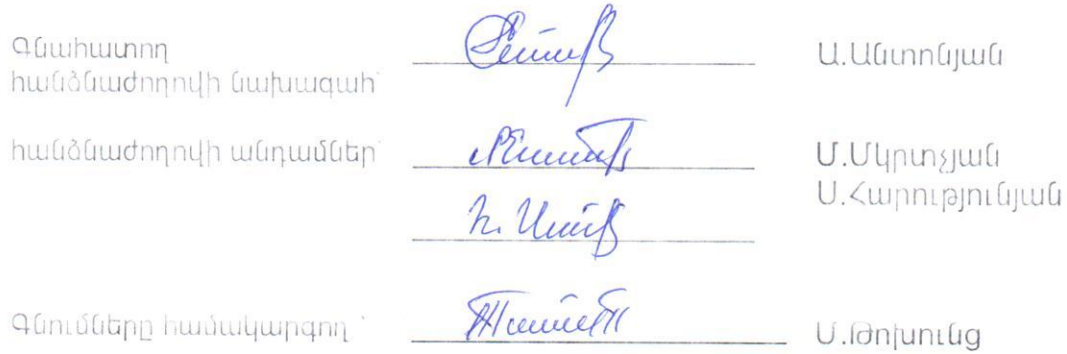 Գնահատող
հանձնաժողովի նախագահ՝ Ա.Անտոնյան
հանձնաժողովի անդամներ՝ Մ.Մկրտչյան
Ս.Հարությունյան
Գնումները համակարգող ՝ Մ.Թոխունց